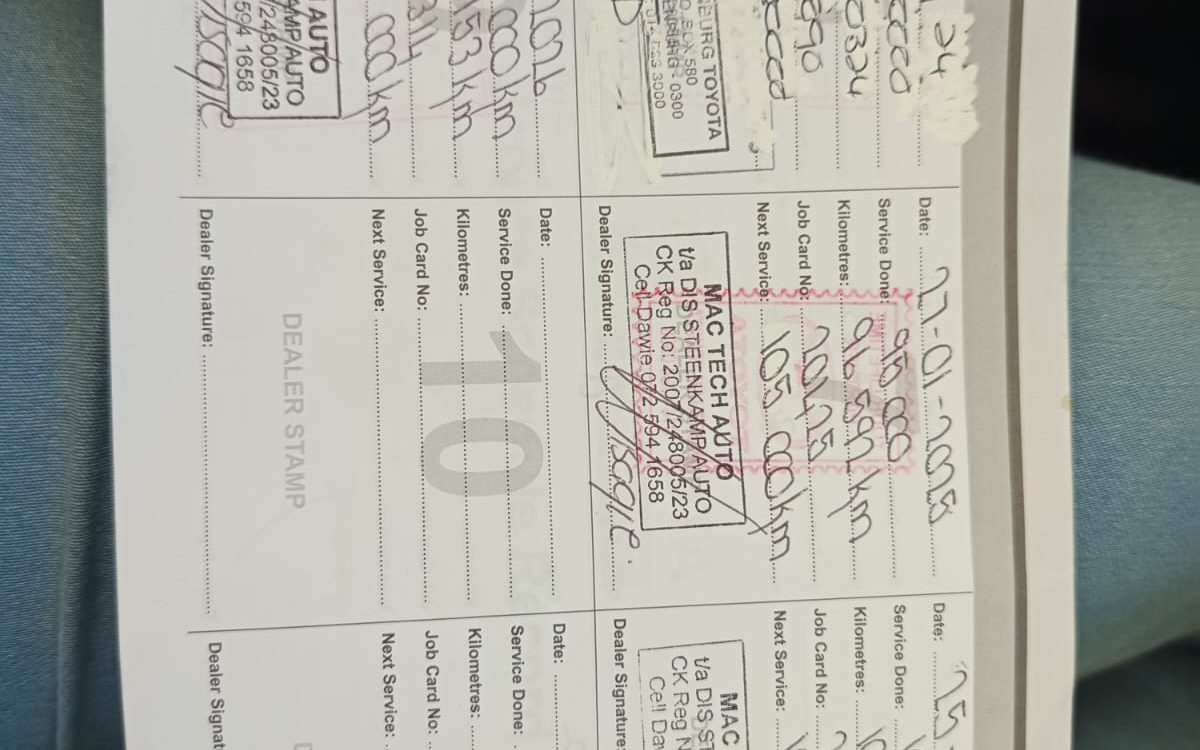 24
0324
990
BURG TOYOTA
580
0300
3000
Date: 27-01-2025
Service Done: 95 000
Kilometres: 96 592 km
Job Card No: 20125
Next Service: 105 000 km
MAC TECH AUTO
t/a DIS STEENKAMP AUTO
CK Reg No: 2007/248005/23
Cell Dawie 072 594 1658
Dealer Signature:
Date:
Service Done:
Kilometres:
Job Card No:
Next Service:
MAC
t/a DIS ST
CK Reg N
Cell Daw
Dealer Signature:
2026
000 km
153 km
311
000 km
AUTO
AMP AUTO
/248005/23
594 1658
Date:
Service Done:
Kilometres:
Job Card No:
Next Service:
10
DEALER STAMP
Dealer Signature:
Date:
Service Done:
Kilometres:
Job Card No:
Next Service:
D
Dealer Signat